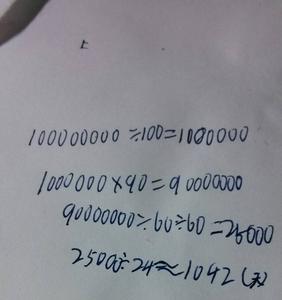 上
100000000÷100=1000000
1000000×90=90000000
90000000÷60÷60=25000
25000÷24≈1042(天)